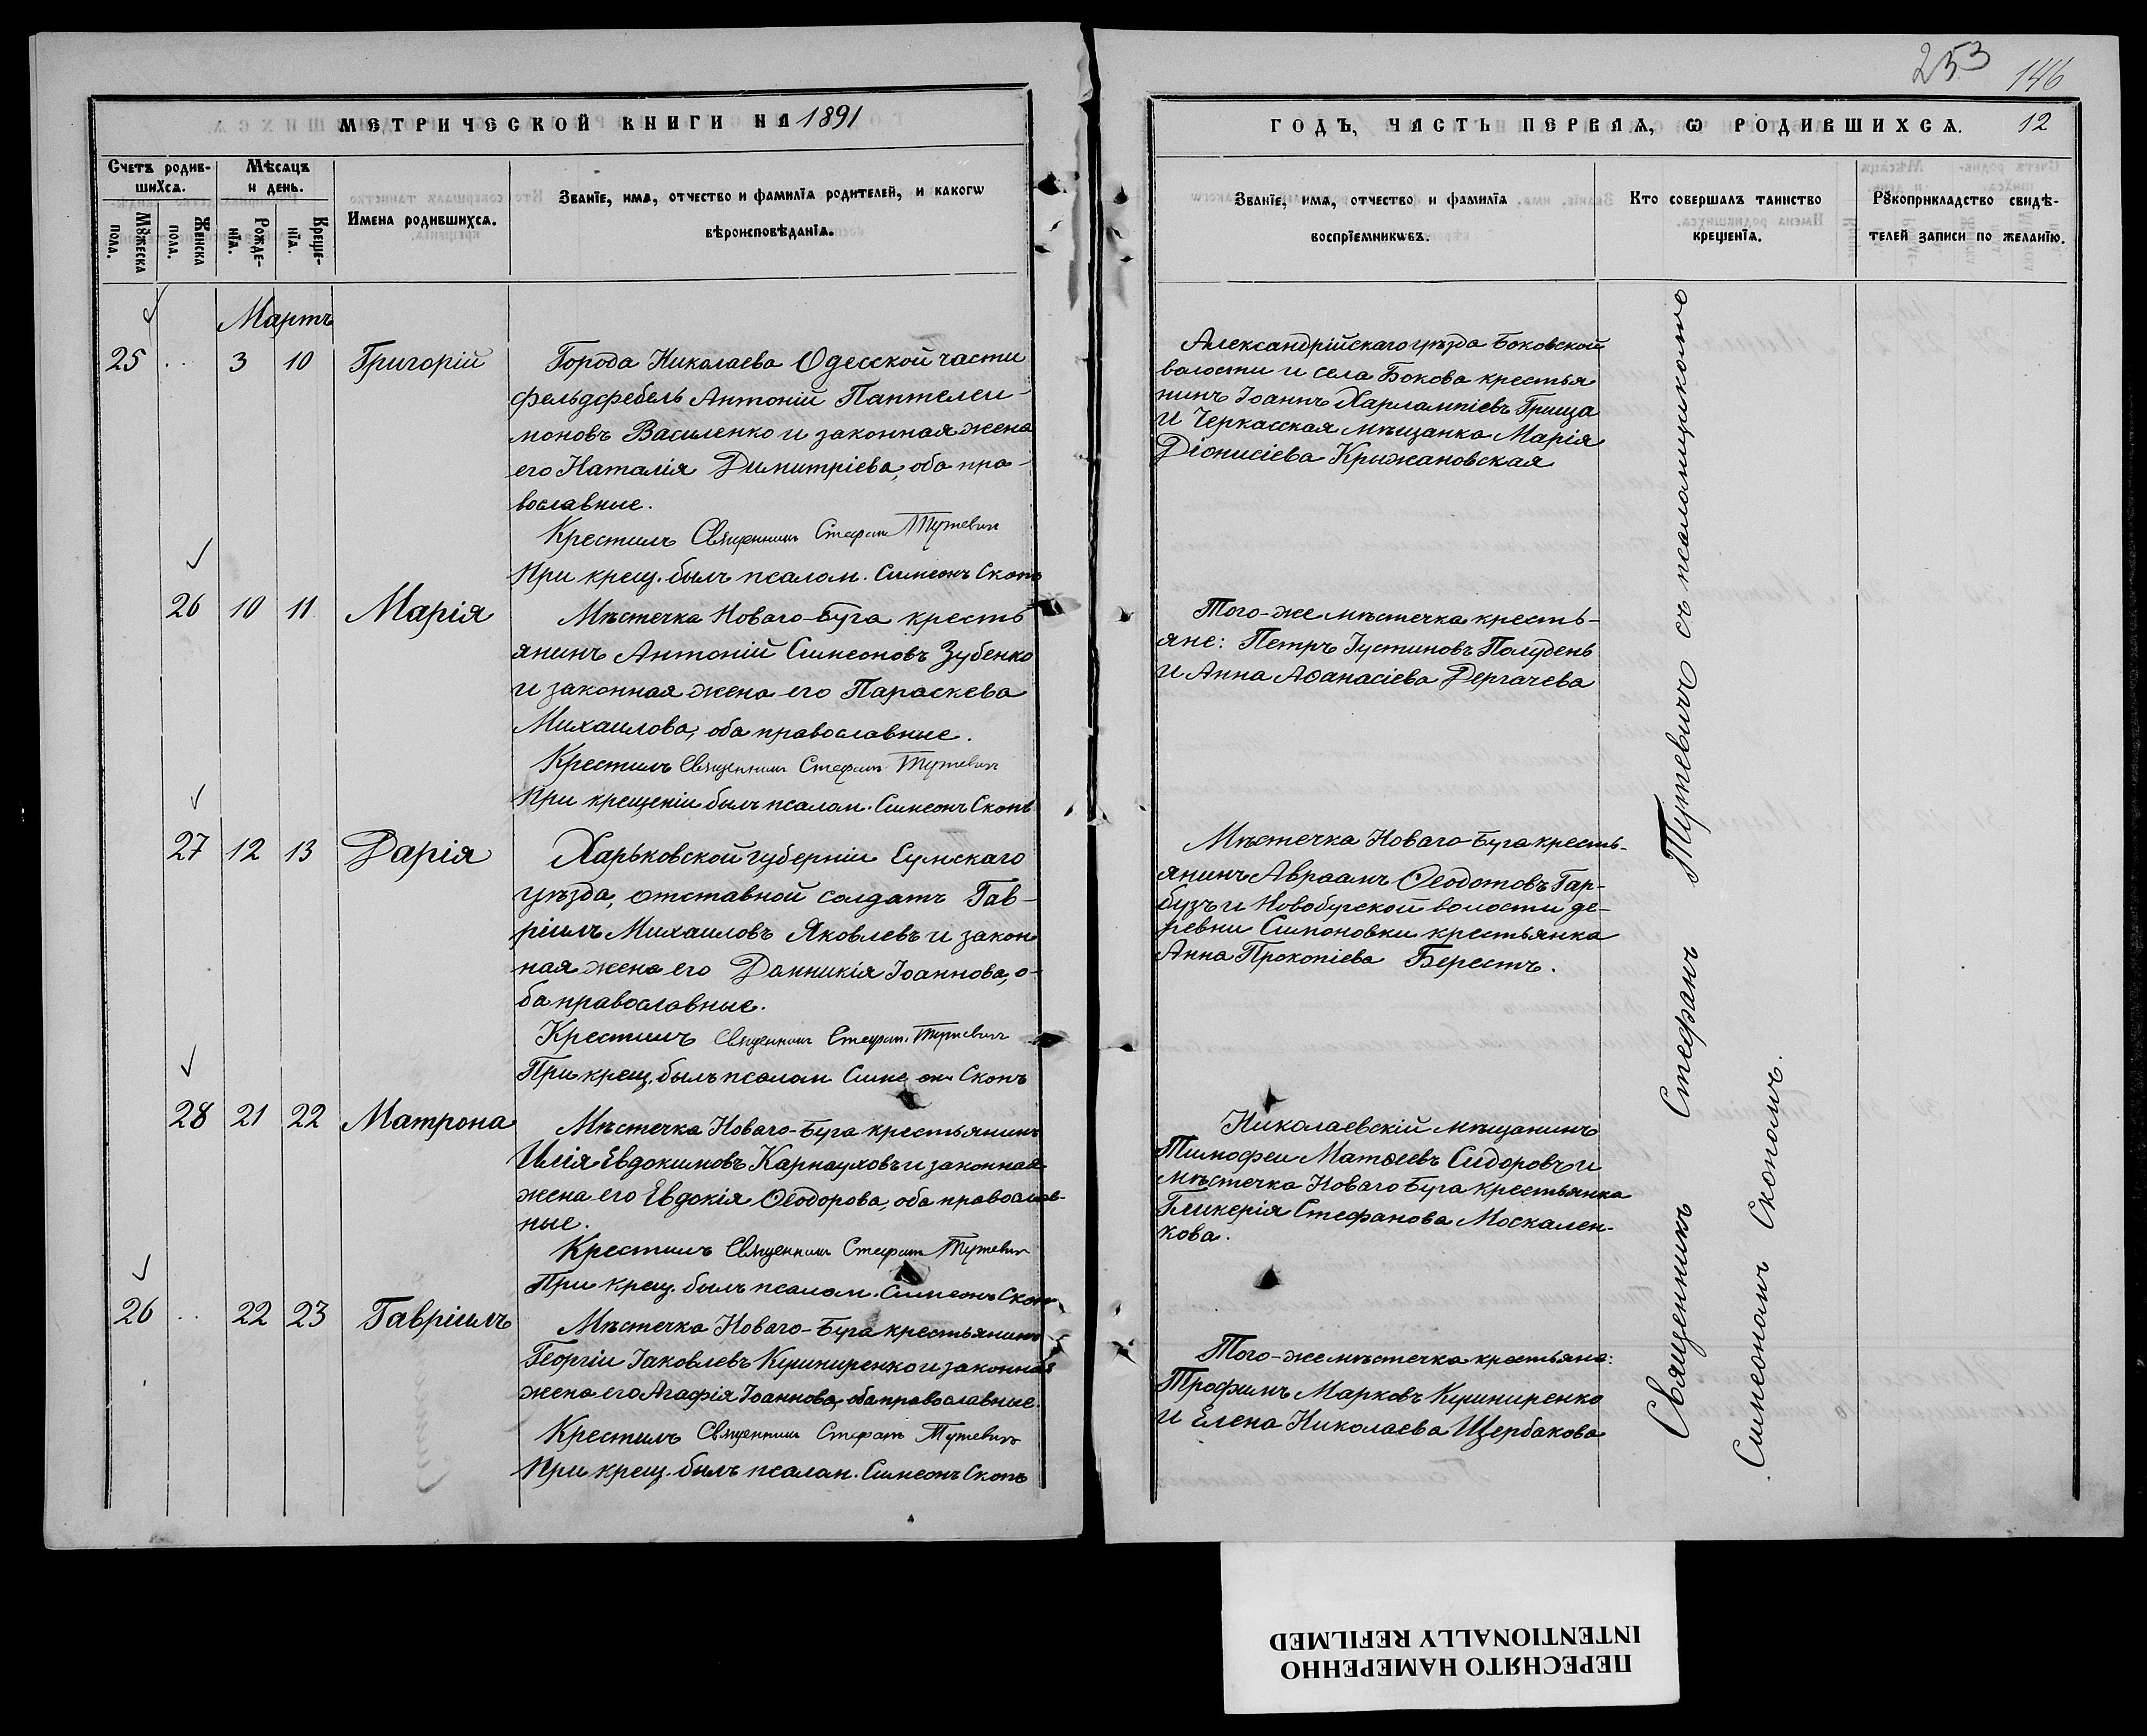 253
146
МЕТРИЧЕСКОЙ КНИГИ НА 1891
ГОДЪ, ЧАСТЬ ПЕРВАЯ, Ѡ РОДИВШИХСѦ. 12
Счетъ родив-
шихсѧ.
Мѣсяцъ
и день.
Мꙋжеска
пола.
Женска
пола.
Рожде-
нїѧ.
Креще-
нїѧ.
Имена родившихсѧ.
Званїе, имѧ, отчество и фамилїѧ родителей, и какогѡ
вѣроисповѣданїѧ.
Званїе, имѧ, отчество и фамилїѧ
воспрїемникѡвъ.
Кто совершалъ таинство
крещенїѧ.
Рꙋкоприкладство свидѣ-
телей записи по желанїю.
Мартъ
25 .. 3 10 Григорій
Города Николаева Одесской части
фельдфебель Антоній Пантелеи-
моновъ Василенко и законная жена
его Наталія Димитріева, оба пра-
вославные.
Крестилъ Священникъ Стефан Тутевич
При крещ. былъ псалом. Симеонъ Скопъ
Александрійскаго уѣзда Боковской
волости и села Бокова крестья
нинъ Іоаннъ Харлампіевъ Грица
и Черкасская мѣщанка Марія
Діонисіева Крижановская
26 10 11 Марія
Мѣстечка Новаго-Буга кресть
янинъ Антоній Симеоновъ Зубенко
и законная жена его Параскева
Михаилова, оба православные.
Крестилъ Священник Стефанъ Тутевич
При крещеніи былъ псалом. Симеонъ Скопъ
Того-же мѣстечка кресть-
яне: Петръ Іустиновъ Полудень
и Анна Аѳанасіева Дергачева
27 12 13 Дарія
Харьковской губерніи Сумскаго
уѣзда, отставной солдатъ Гав-
ріилъ Михаиловъ Яковлевъ и закон
ная жена его Домникія Іоаннова, о-
ба православные.
Крестилъ Священник Стефан. Тутевич
При крещ. былъ псалом Симеонъ Скопъ
Мѣстечка Новаго-Буга кресть-
янинъ Авраамъ Ѳеодотовъ Гар-
бузъ и Новобугской волости де-
ревни Симоновки крестьянка
Анна Прокопіева Берестъ.
28 21 22 Матрона
Мѣстечка Новаго-Буга крестьянинъ
Илія Евдокимовъ Карнауховъ и законная
жена его Евдокія Ѳеодорова, оба православ-
ные.
Крестилъ Священник Стефан Тутевич
При крещ. былъ псалом. Симеонъ Скопъ
Николаевскій мѣщанинъ
Тимофеи Матѳеевъ Сидоровъ и
мѣстечка Новаго Буга крестьянка
Гликерія Стефанова Москален-
кова.
26 .. 22 23 Гавріилъ
Мѣстечка Новаго-Буга крестьянинъ
Георгіи Іаковлевъ Кушниренко и законная
жена его Агафія Іоаннова, оба православные.
Крестилъ Священник Стефанъ Тутевичъ
При крещ. былъ псалом. Симеонъ Скопъ
Того-же мѣстечка крестьяне:
Трофимъ Марковъ Кушниренко
и Елена Николаева Щербакова
Священникъ Стефанъ Тутевичъ съ псаломщикомъ
Симеономъ Скопомъ.
ПЕРЕСНЯТО НАМЕРЕННО
INTENTIONALLY REFILMED